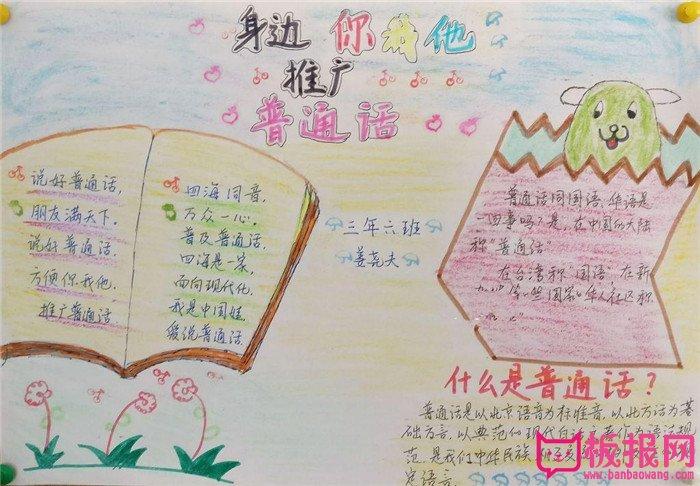 身边你我他
推广
普通话
说好普通话,
朋友满天下。
说好普通话,
方便你我他,
推广普通话
四海同音,
万众一心。
普及普通话,
四海是一家,
面向现代化,
我是中国娃,
爱说普通话
三年六班
姜尧夫
普通话同国语、华语是
一回事吗?是,在中国的大陆
称"普通话"
在台湾称"国语"在新
等一些国家华人社区称
什么是普通话?
普通话是以北京语音为标准音,以北方话为基
础方言,以典范的现代白话文著作为语法规
范,是我们中华民族
定语言。
板报网
www.banbaowang.com